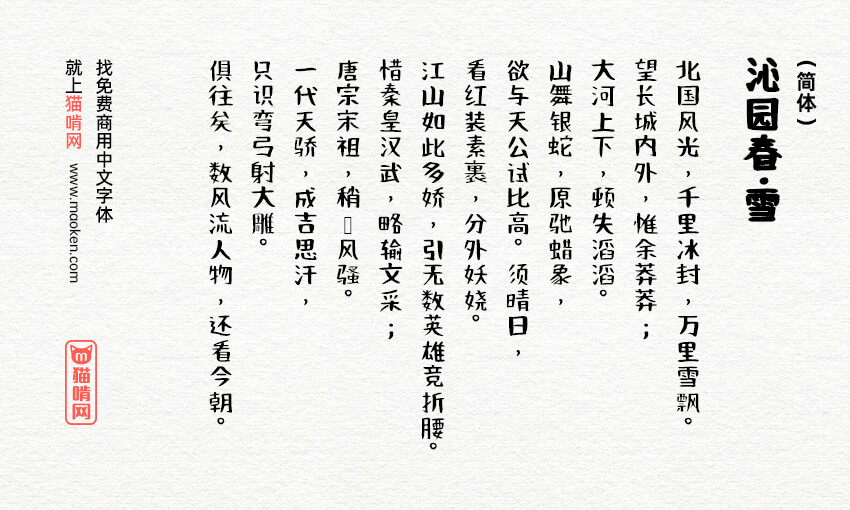 (简体)
沁园春·雪
北国风光，千里冰封，万里雪飘。
望长城内外，惟余莽莽；
大河上下，顿失滔滔。
山舞银蛇，原驰蜡象，
欲与天公试比高。须晴日，
看红装素裹，分外妖娆。
江山如此多娇，引无数英雄竞折腰。
惜秦皇汉武，略输文采；
唐宗宋祖，稍▯风骚。
一代天骄，成吉思汗，
只识弯弓射大雕。
俱往矣，数风流人物，还看今朝。
找免费商用中文字体
就上猫啃网 www.maoken.com
m
猫啃网